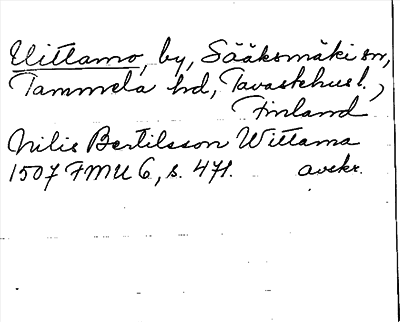 Uittamo, by, Sääksmäki sn,
Tammela hd, Tavastehus l.,
Finland
Nilis Bertilsson Wittama
1507 FMU 6, s. 471. avskr.